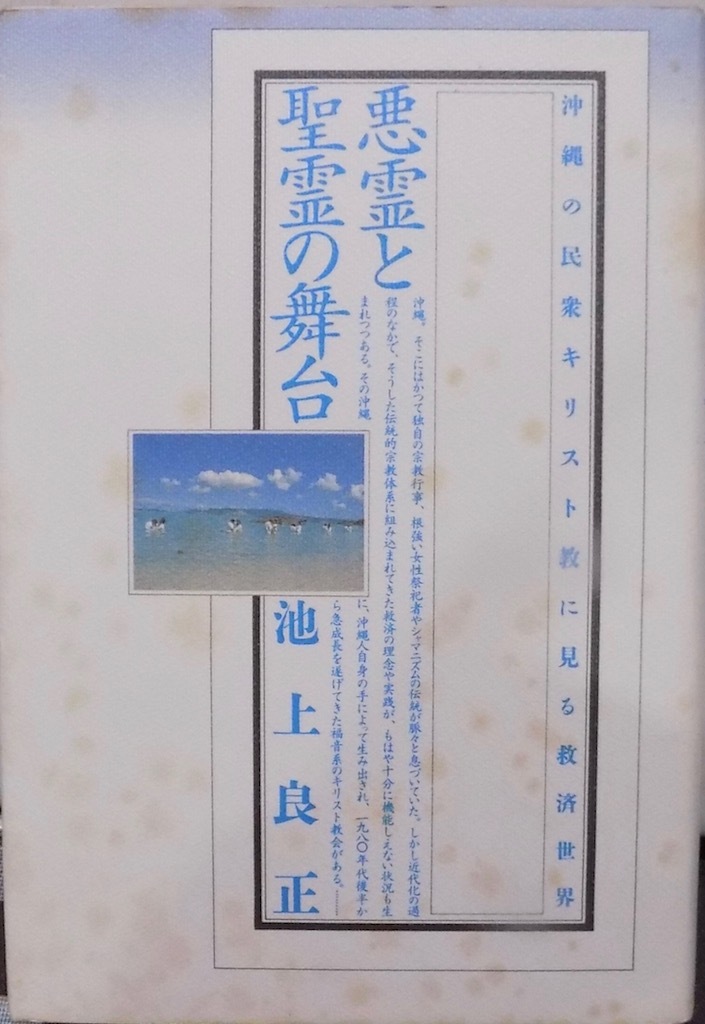 沖縄の民衆キリスト教に見る救済世界
悪霊と
聖霊の舞台
沖縄。そこにはかつて独自の宗教行事、根強い女性祭祀者やシャマニズムの伝統が脈々と息づいていた。しかし近代化の過
程のなかで、そうした伝統的宗教体系に組み込まれてきた救済の理念や実践が、もはや十分に機能しえない状況も生
まれつつある。その沖縄
に、沖縄人自身の手によって生み出され、一九八〇年代後半か
ら急成長を遂げてきた福音系のキリスト教会がある。………
池上良正